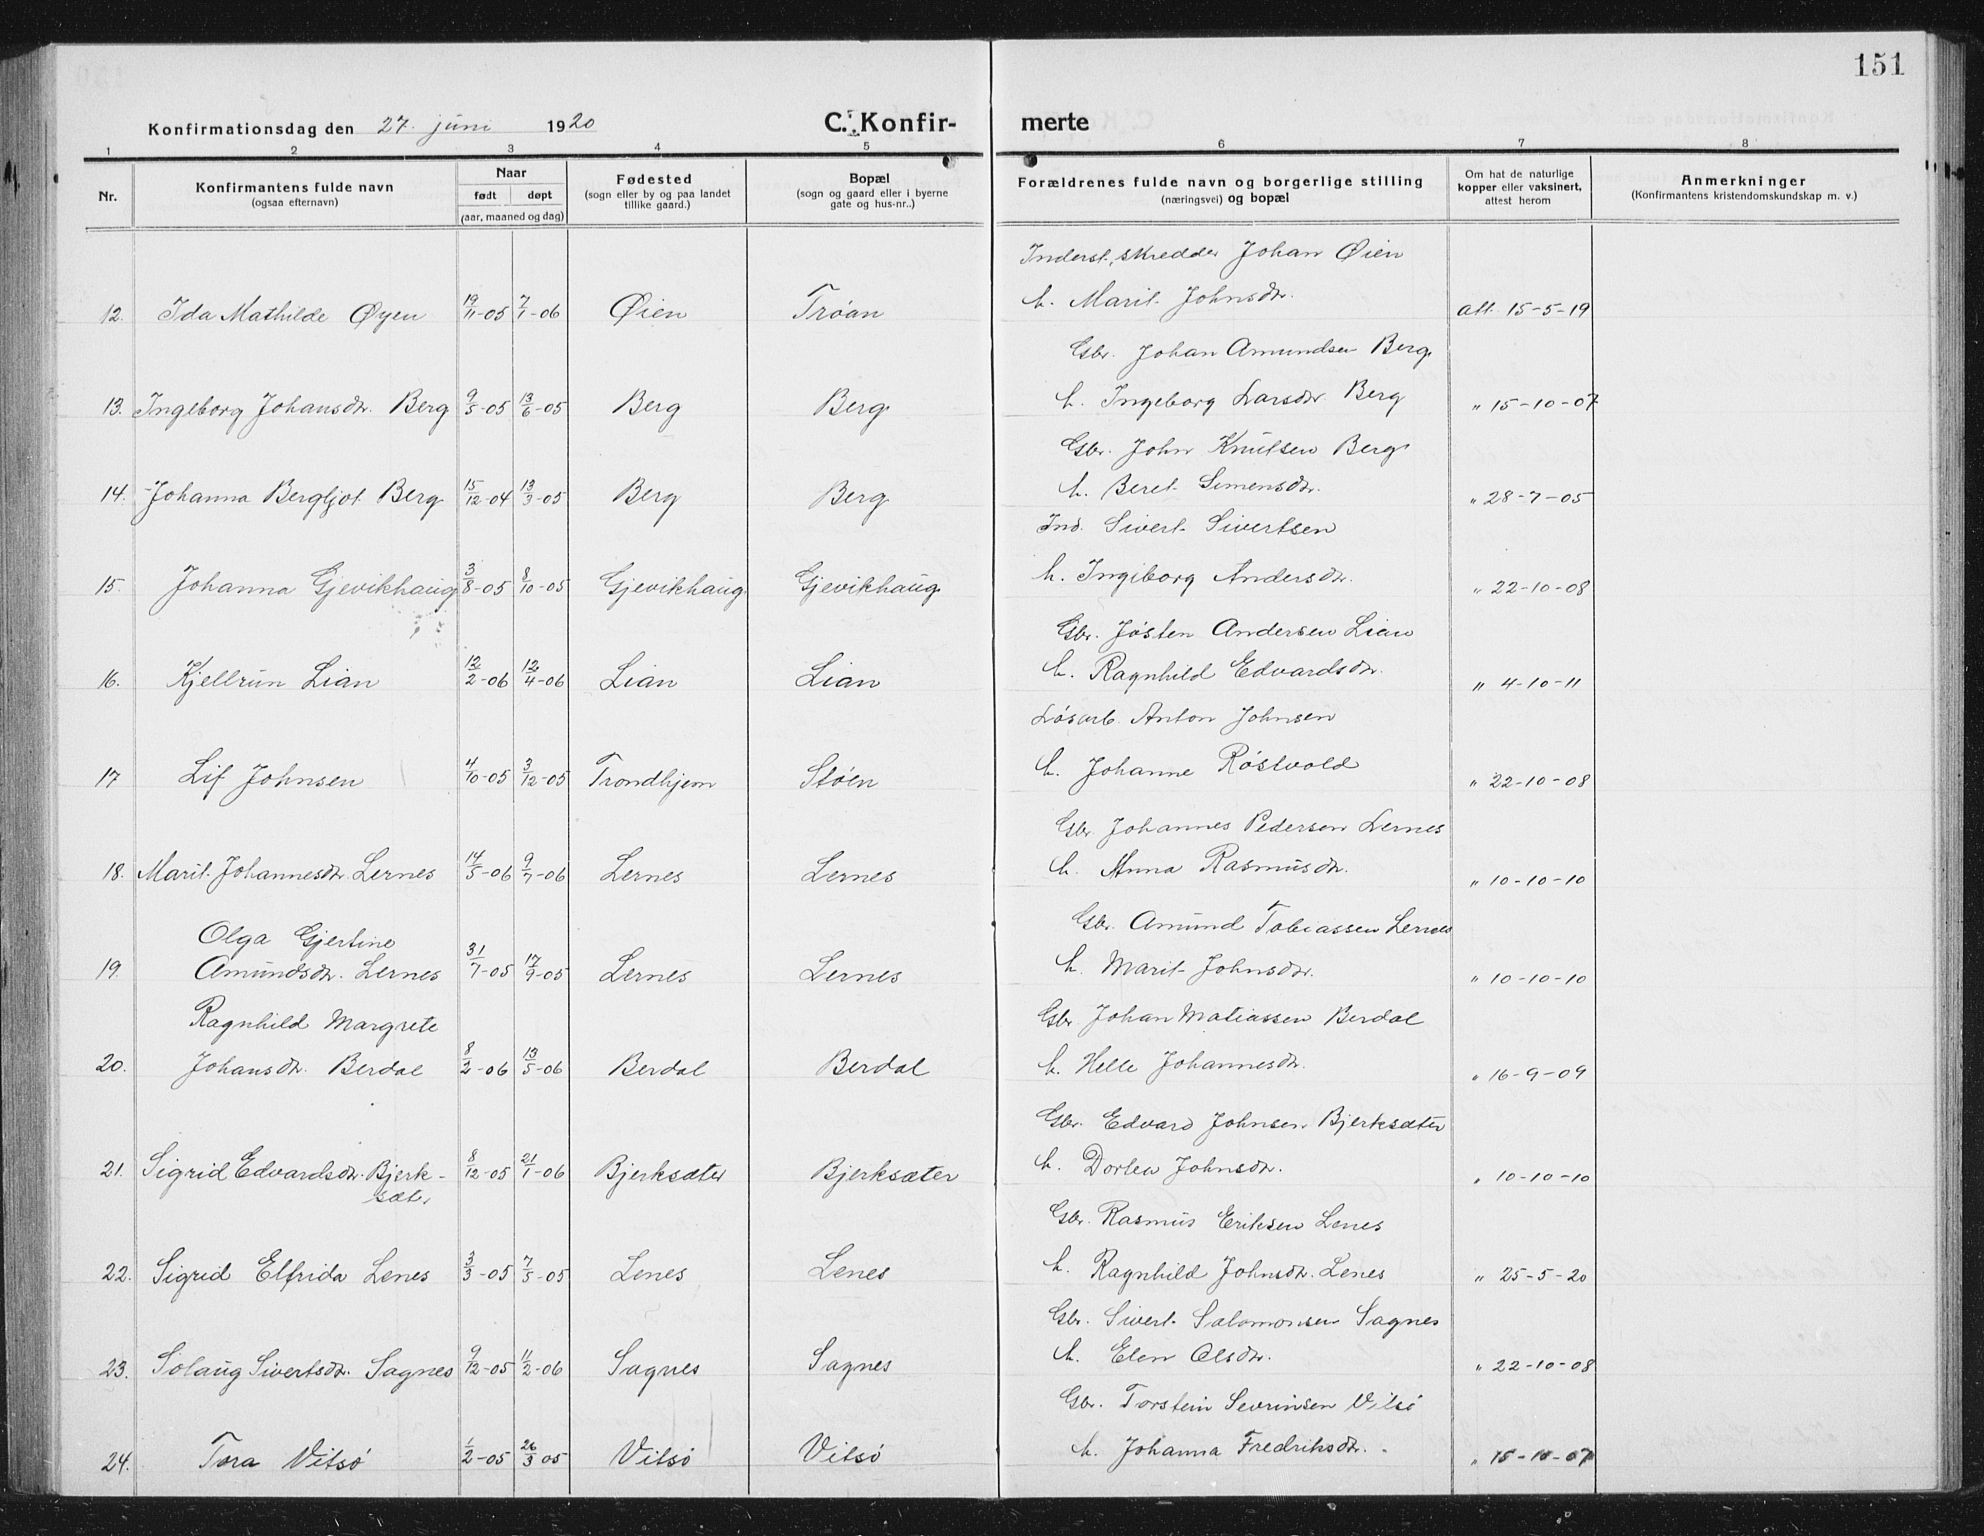 151
Konfirmationsdag den 27. juni 1920
C. Konfir-
merte
1 2 3 4 5 6 7 8
Nr.
Konfirmantens fulde navn
(ogsaa efternavn)
Naar
født døpt
(aar, maaned og dag)
Fødested
(sogn eller by og paa landet
tillike gaard.)
Bopæl
(sogn og gaard eller i byerne
gate og hus-nr..)
Forældrenes fulde navn og borgerlige stilling
(næringsvei) og bopæl
Om hat de naturlige
kopper eller vaksinert,
attest herom
Anmerkninger
(Konfirmantens kristendomskundskap m. v.)
Inderst, skredder Johan Øien
12. Ida Mathilde Øyen 19/11-05 7/1-06 Øien Trøan h. Marit Johnsdr. att. 15-5-19
Gbr. Johan Amundsen Berg
13. Ingeborg Johansdr. Berg 9/5-05 13/6-05 Berg Berg h. Ingeborg Larsdr. Berg " 15-10-07
Gbr. John Knutsen Berg
14. Johanna Bergljot Berg 15/12-04 13/3-05 Berg Berg h. Beret Simensdr. " 28-7-05
Ind. Sivert Sivertsen
15. Johanna Gjevikhaug 3/8-05 8/10-05 Gjevikhaug Gjevikhaug h. Ingiborg Andersdr. " 22-10-08
Gbr. Jøsten Andersen Lian
16. Kjellrun Lian 12/2-06 12/4-06 Lian Lian h. Ragnhild Edvardsdr. " 4-10-11
Løsarb. Anton Johnsen
17 Lif Johnsen 4/10-05 3/12-05 Trondhjem Støen h. Johanne Røstvold " 22-10-08
Gbr. Johannes Pedersen Lernes
18. Marit Johannesdr. Lernes 14/5-06 9/7-06 Lernes Lernes h. Anna Rasmusdr. " 10-10-10
Olga Gjertine Gbr. Amund Tobiassen Lernes
19. Amundsdr. Lernes 31/7-05 17/9-05 Lernes Lernes h. Marit Johnsdr. " 10-10-10
Ragnhild Margrete Gbr Johan Matiassen Berdal
20. Johansdr. Berdal 8/2-06 13/5-06 Berdal Berdal h. Helle Johannesdr. " 16-9-09
Gbr. Edvard Johnsen Bjerksæter
21. Sigrid Edvardsdr. Bjerk- 8/12-05 21/1-06 Bjerksæter Bjerksæter h. Dortea Johnsdr. " 10-10-10
sæt.
Gbr. Rasmus Eriksen Lenes
22. Sigrid Elfrida Lenes 3/3-05 7/5-05 Lenes Lenes h. Ragnhild Johnsdr. Lenes " 25-5-20
Gbr. Sivert Salomonsen Sagnes
23. Solaug Sivertsdr. Sagnes 9/12-05 11/2-06 Sagnes Sagnes h. Elen Olsdr. " 22-10-08
Gbr. Torstein Sevrinsen Vitsø
24. Tora Vitsø 1/2-05 26/3 05 Vitsø Vitsø h. Johanna Fredriksdr. " 15-10-07